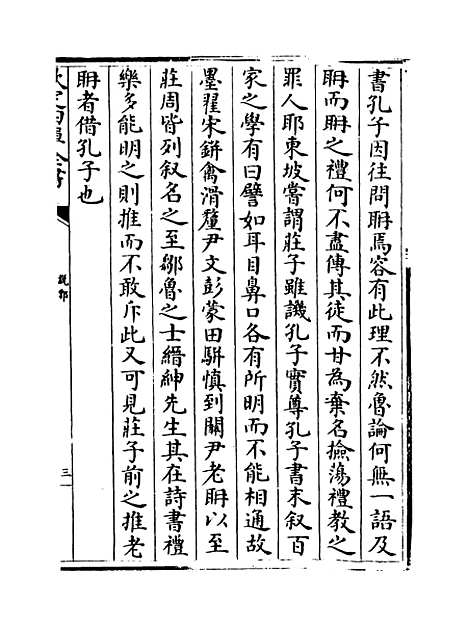 書孔子因往問聃焉容有此理不然魯論何無一語及
聃而聃之禮何不盡傳其徒而甘為棄名撿蕩禮教之
罪人耶東坡嘗謂莊子雖譏孔子實尊孔子書末叙百
家之學有曰譬如耳目鼻口各有所明而不能相通故
墨翟宋鈃禽滑釐尹文彭蒙田駢慎到關尹老聃以至
莊周皆列叙名之至鄒魯之士縉紳先生其在詩書禮
樂多能明之則推而不敢斥此又可見莊子前之推老
聃者借孔子也
欽定四庫全書
說郛